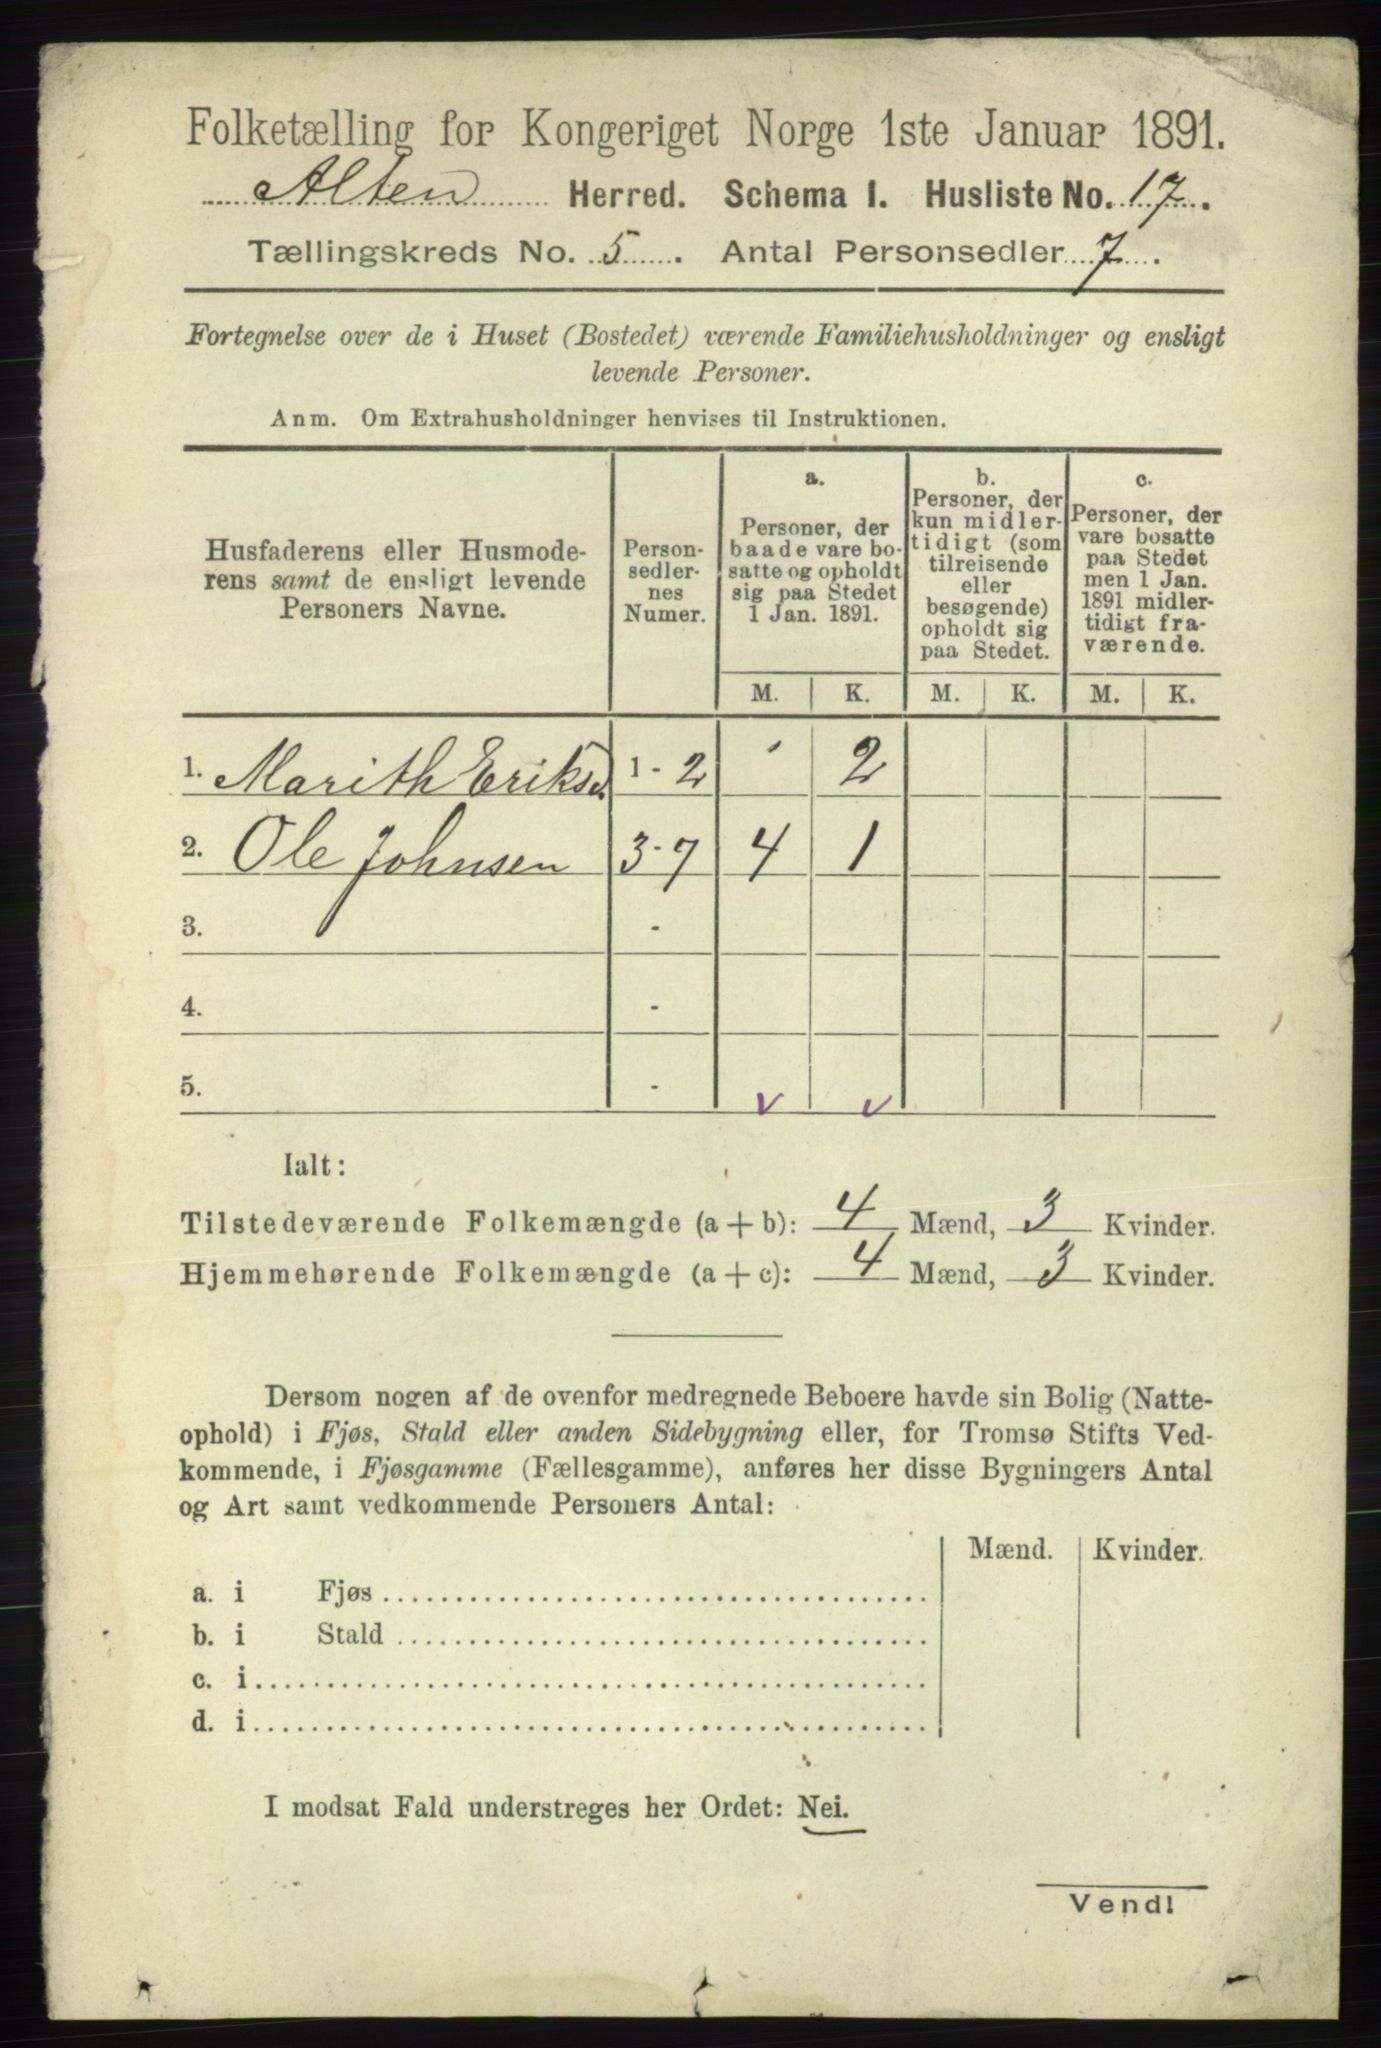 Folketælling for Kongeriget Norge 1ste Januar 1891.
Alten Herred. Schema I. Husliste No. 17.
Tællingskreds No. 5. Antal Personsedler 7.
Fortegnelse over de i Huset (Bostedet) værende Familiehusholdninger og ensligt
levende Personer.
Anm. Om Extrahusholdninger henvises til Instruktionen.
Husfaderens eller Husmode-
rens samt de ensligt levende
Personers Navne.
Person-
sedler-
nes
Numer.
a.
Personer, der
baade vare bo-
satte og opholdt
sig paa Stedet
1 Jan. 1891.
b.
Personer, der
kun midler-
tidigt (som
tilreisende
eller
besøgende)
opholdt sig
paa Stedet.
c.
Personer, der
vare bosatte
paa Stedet
men 1 Jan.
1891 midler-
tidigt fra-
værende.
M. K. M. K. M. K.
1. Marith Eriksd. 1 - 2 2
2. Ole Johnsen 3 - 7 4 1
3. -
4. -
5. -
Ialt:
Tilstedeværende Folkemængde (a + b): 4 Mænd, 3 Kvinder.
Hjemmehørende Folkemængde (a + c): 4 Mænd, 3 Kvinder.
Dersom nogen af de ovenfor medregnede Beboere havde sin Bolig (Natte-
ophold) i Fjøs, Stald eller anden Sidebygning eller, for Tromsø Stifts Ved-
kommende, i Fjøsgamme (Fællesgamme), anføres her disse Bygningers Antal
og Art samt vedkommende Personers Antal:
Mænd. Kvinder.
a. i Fjøs
b. i Stald
c. i
d. i
I modsat Fald understreges her Ordet: Nei.
Vend!